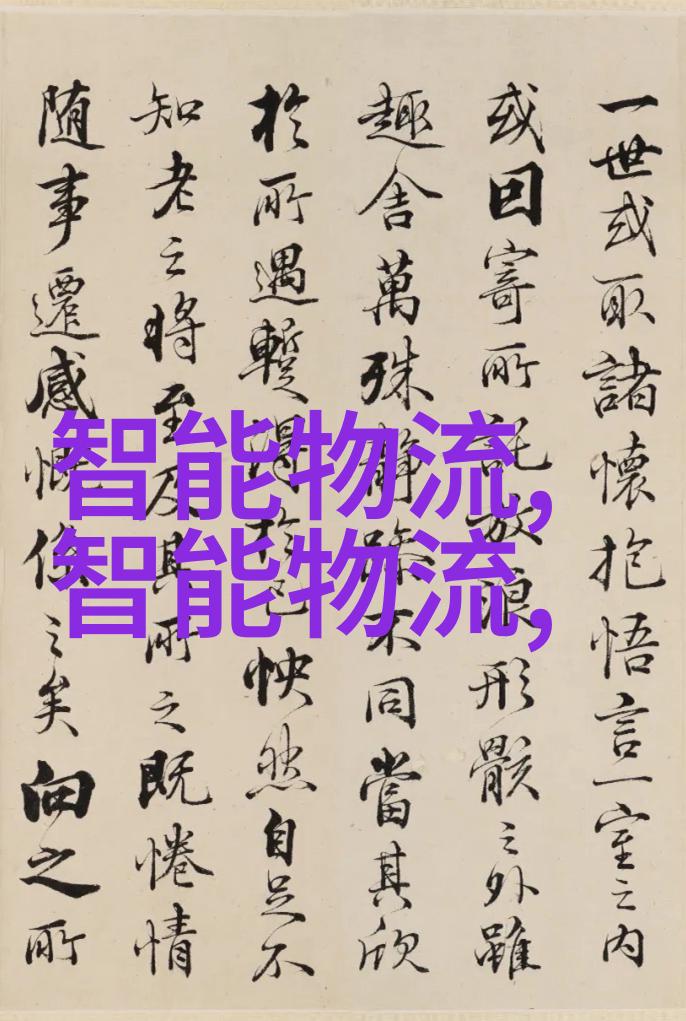 一世或取諸懷抱悟言一室之内
或因寄所託放浪形骸之外雖
趣舍萬殊静躁不同當其欣
於所遇蹔得於己怏然自足不
知老之將至及其所之既惓情
随事遷感慨係之矣向之所
智能物流,
智能物流,